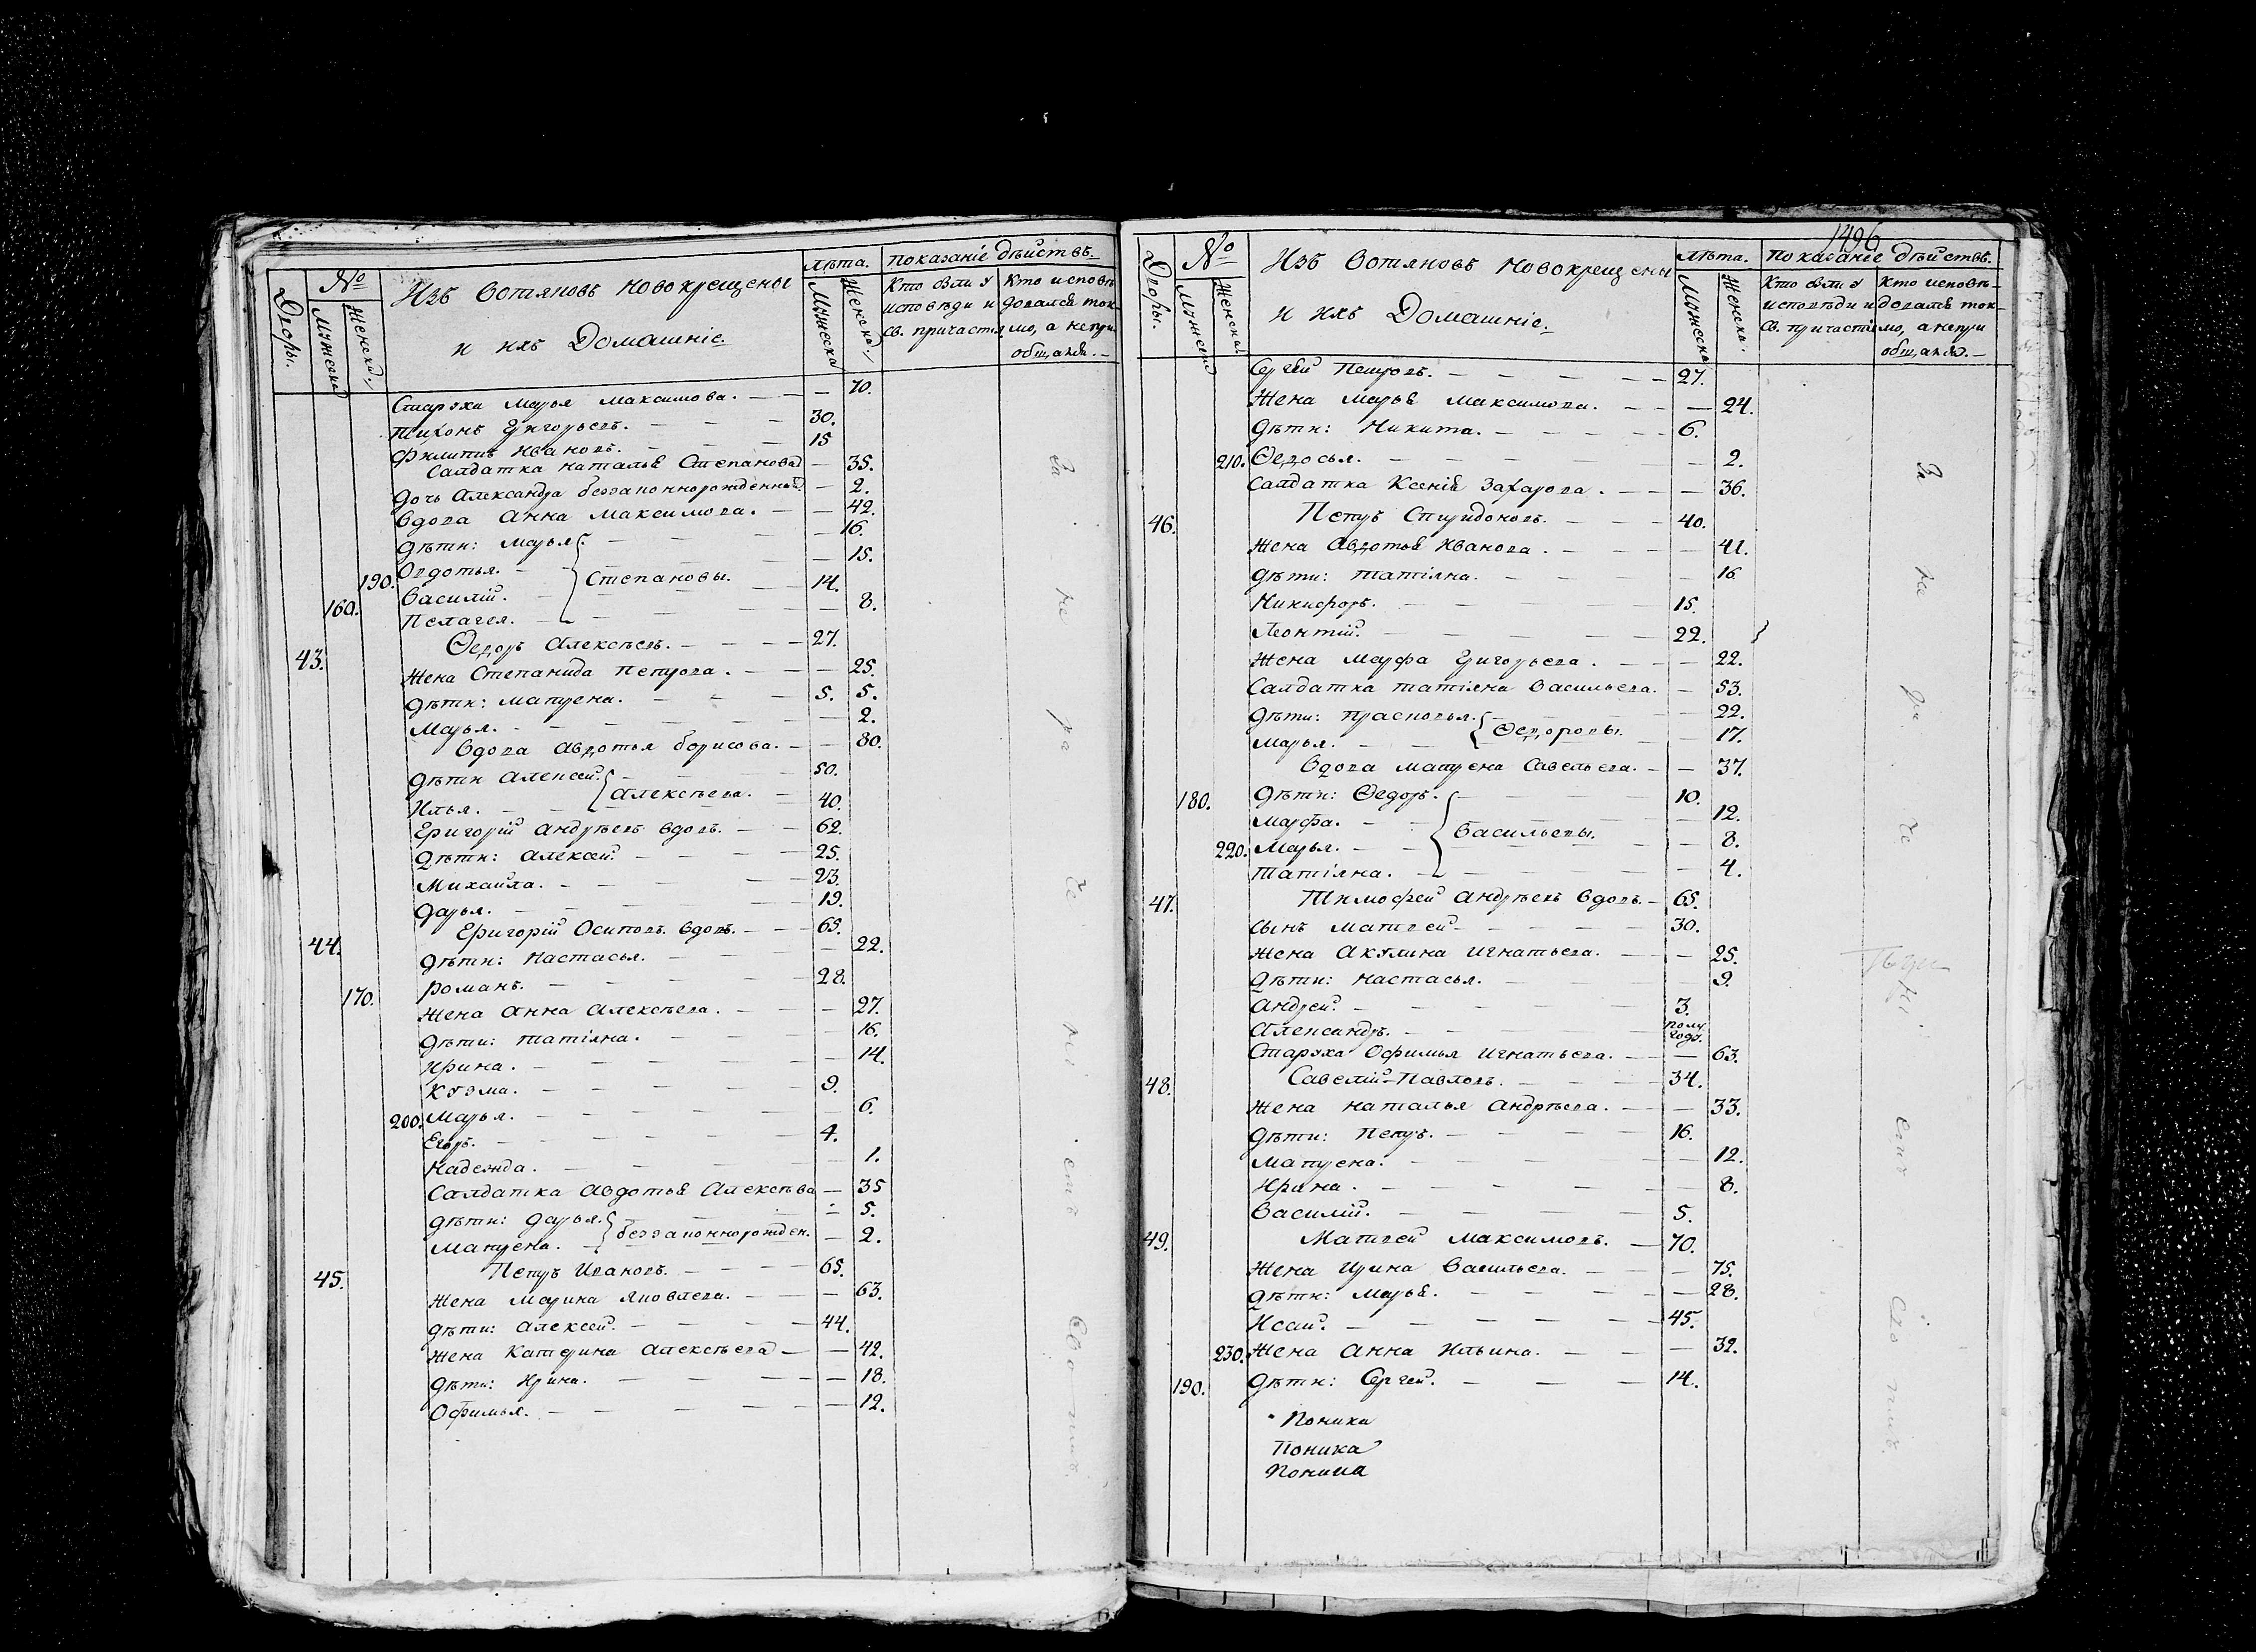 Дворы.
№
Мужеска
Женска.
Изъ Вотяковъ Новокрещены
и ихъ Домашніе.
Лѣта.
Мужеска
Женска.
Показаніе дѣйствъ.
Кто были у исповѣди и Св. причастія
Кто исповѣдовался токмо, а непри
общался.—
Старуха Марья Максимова. — — 70.
Тихонъ Григорьевъ. — — — 30.
Филиппъ Ивановъ. — — — 15
Салдатка Наталья Степанова — 35.
Дочь Александра беззаконнорожденная — 2.
Вдова Анна Максимова. — — 42.
Дѣти: Марья. — — — 16.
190. Овдотья. — — 15.
160. Василій. — Степановы. — 14.
Пелагея. — — — 8.
43. Ѳедоръ Алексѣевъ. — — — 27.
Жена Степанида Петрова. — — 25.
Дѣти: Матрена. — — — 5. 5.
Марья. — — — — 2.
Вдова Авдотья Борисова. — — 80.
Дѣти Алексей. — — — 50.
Илья. — — Алексѣева. — 40.
Григорій Андрѣевъ вдовъ. — — 62.
Дѣти: Алексей. — — — 25.
Михаила. — — — — 23.
Дарья. — — — — 19.
44. Григорій Осиповъ вдовъ. — — 65.
Дѣти: Настасья. — — — 22.
170. Романъ. — — — — 28.
Жена Анна Алексѣева. — — — 27.
Дѣти: Татіяна. — — — 16.
Ирина. — — — — 14.
Кузма. — — — — 9.
200. Марья. — — — — 6.
Егоръ. — — — — 4.
Надежда. — — — — 1.
Салдатка Авдотья Алексѣва — 35
Дѣти: Дарья. — — — 5.
Матрена. — беззаконнорожден. — 2.
45. Петръ Ивановъ. — — — 65.
Жена Марина Яковлева. — — — 63.
Дѣти: Алексей. — — — 44.
Жена Катерина Алексѣева — — 42.
Дѣти: Ирина. — — — — 18.
Офимья. — — — — 12.
1496
Дворы.
№
Мужеска
Женска.
Изъ Вотяковъ Новокрещены
и ихъ Домашніе.
Лѣта.
Мужеска
Женска.
Показаніе дѣйствъ.
Кто были у исповѣди и Св. причастія
Кто исповѣдовался токмо, а непри
общался.—
Сергей Петровъ. — — — — 27.
Жена Марья Максимова. — — — 24.
Дѣти: Никита. — — — — 6.
210. Ѳедосья. — — — — 2.
Салдатка Ксенія Захарова. — — 36.
46. Петръ Спиридоновъ. — — — 40.
Жена Авдотья Иванова. — — — 41.
Дѣти: Татіяна. — — — — 16.
Никифоръ. — — — — 15.
Леонтій. — — — — 22.
Жена Марфа Григорьева. — — — 22.
Салдатка Татіяна Васильева. — 53.
Дѣти: Прасковья. — — 22.
Марья. — — Ѳедоровы. — 17.
Вдова Матрена Савельева. — — 37.
180. Дѣти: Ѳедоръ. — — — 10.
Марфа. — — — 12.
220. Марья. — — Васильевы. — 8.
Татіяна. — — — 4.
47. Тимофей Андрѣевъ вдовъ. — 65.
Сынъ Матвей — — — — 30.
Жена Акулина Игнатьева. — — 25.
Дѣти: Настасья. — — — 9.
Андрей. — — — — 3.
Александръ. — — — — полугода.
Старуха Офимья Игнатьева. — — 63.
48. Савелій Павловъ. — — — 34.
Жена Наталья Андрѣева. — — — 33.
Дѣти: Петръ. — — — — 16.
Матрена. — — — — 12.
Ирина. — — — — 8.
Василій. — — — — 5.
49. Матвей Максимовъ. — 70.
Жена Ирина Васильева. — — — 75.
Дѣти: Марья. — — — — 28.
Исай. — — — — — 45.
230. Жена Анна Ильина. — — — 32.
190. Дѣти: Сергей. — — — 14.